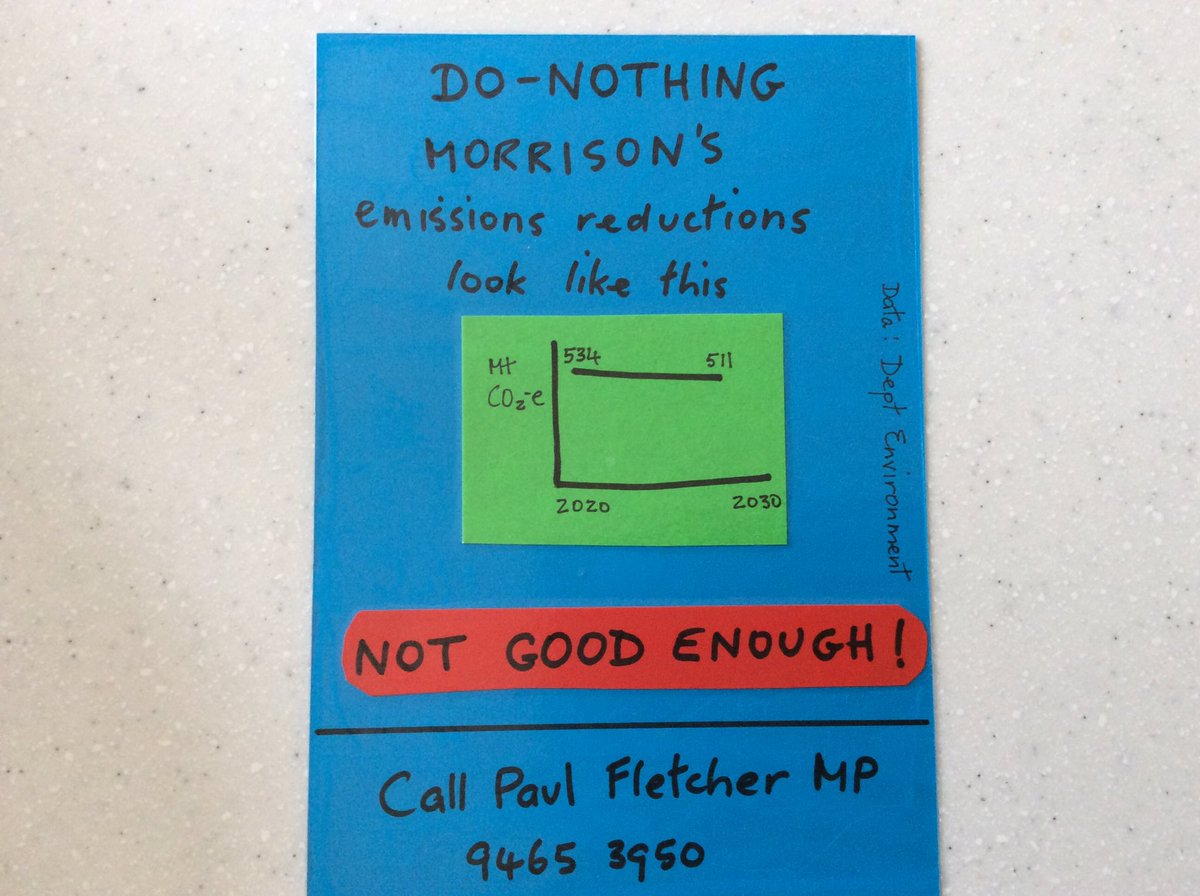 DO-NOTHING
MORRISON'S
emissions reductions
look like this
Mt
CO₂-e
534
511
2020
2030
Data: Dept Environment
NOT GOOD ENOUGH!
Call Paul Fletcher MP
9465 3950